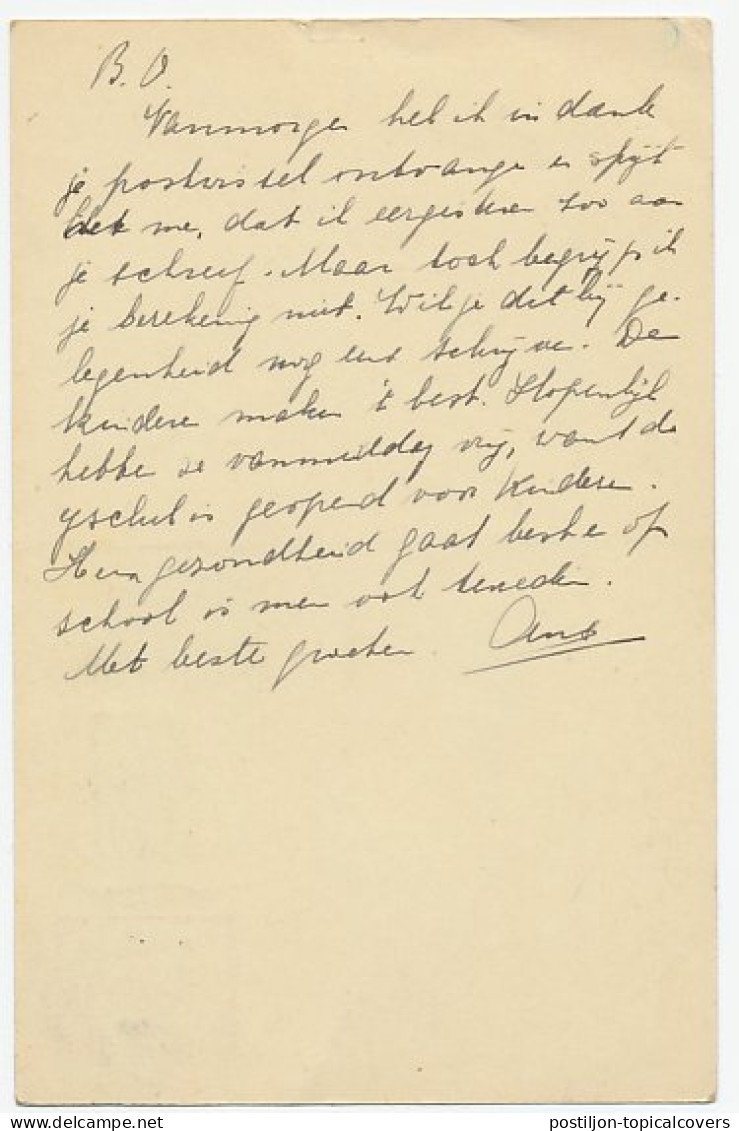 B. O.
Vanmorge heb ik in dank
je postwissel ontvange en spijt
het me, dat ik eergisteren zoo aan
je schreef. Maar toch begrijp ik
je berekening niet. Wil je dit bij ge-
legenheid nog eens schrijve. De
kindere maken 't best. Hopenlijk
hebbe ze vanmiddag vrij, want de
ijsclub is geopend voor kindere.
Hun gezondheid gaat best en op
school is men ook tevreden.
Met beste groeten. Ans
postiljon-topicalcovers